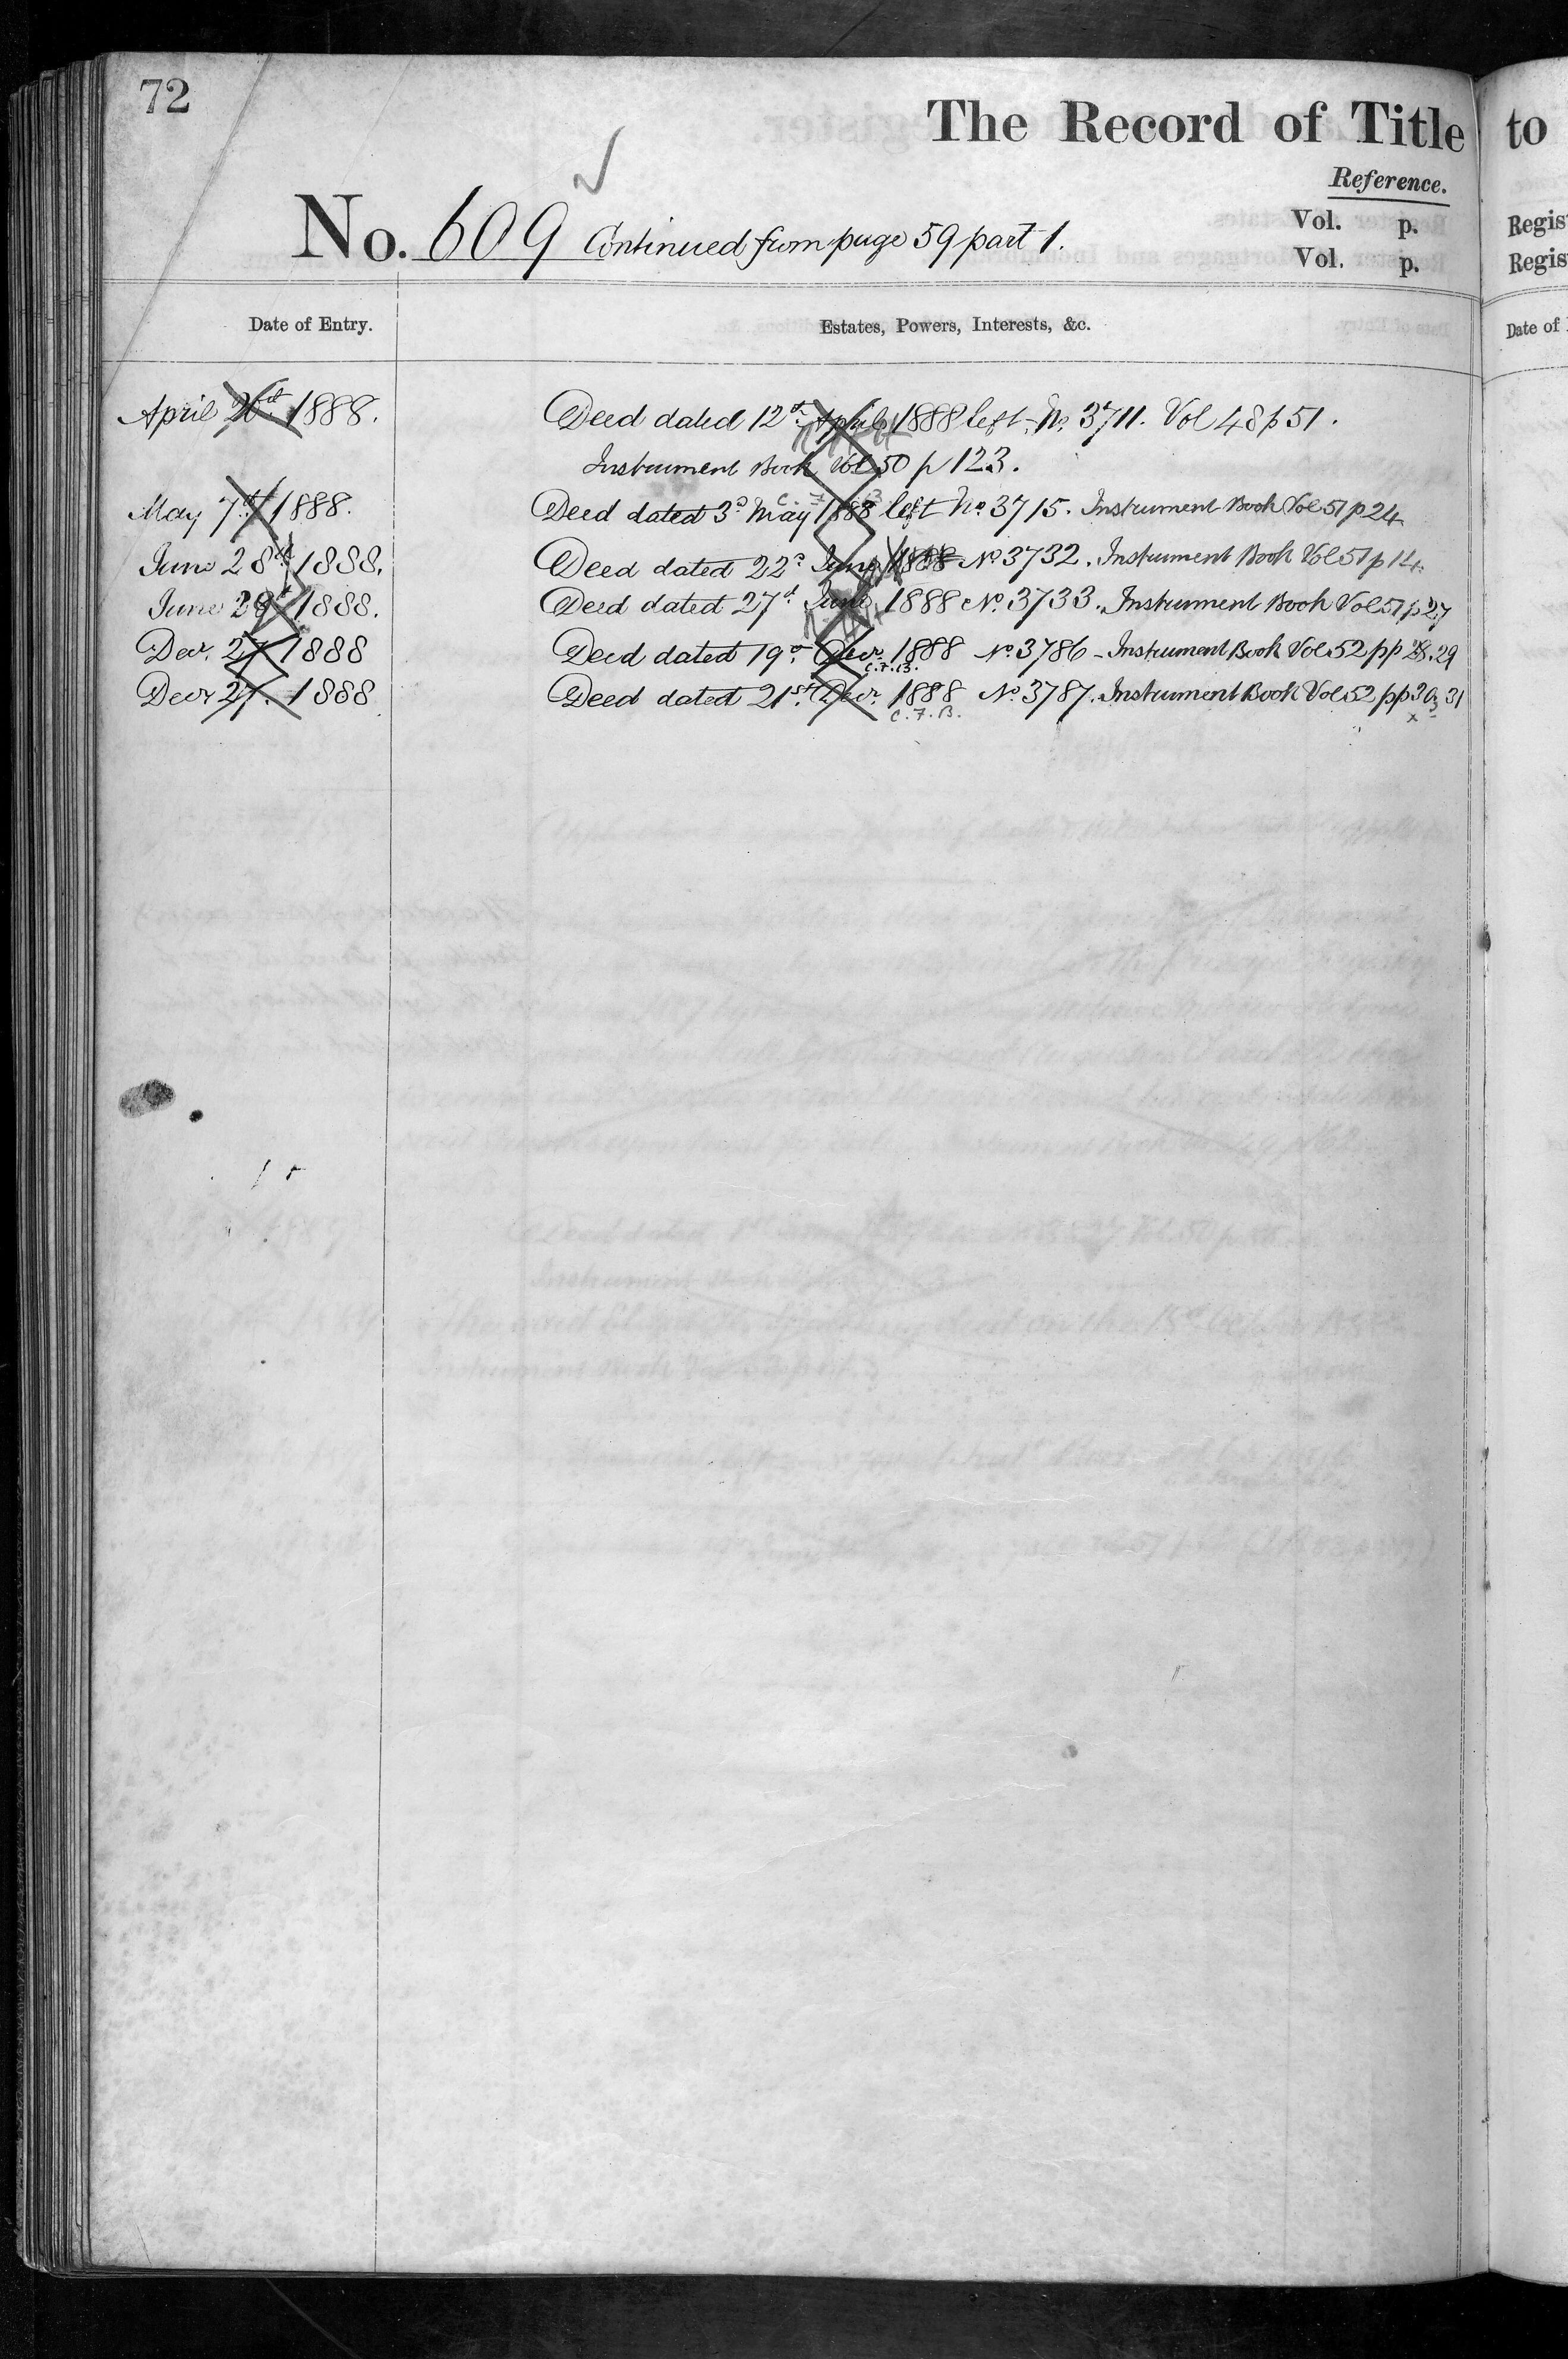 72
The Record of Title
Reference.
No. 609 Continued from page 59 part 1.
Vol. p.
Vol. p.
Date of Entry.
Estates, Powers, Interests, &c.
April 1888. Deed dated 12th April 1888 left No. 3711. Vol 48 p 51.
Instrument Book Vol 50 p 123.
May 7th 1888. Deed dated 3d May 1888 left No. 3715. Instrument Book Vol 51 p 24
June 28th 1888. Deed dated 22d June 1888 No. 3732. Instrument Book Vol 51 p 14
June 29th 1888. Deed dated 27th June 1888 No. 3733. Instrument Book Vol 51 p 27
Decr. 27 1888 Deed dated 19th Decr. 1888 No. 3786 - Instrument Book Vol 52 pp 28.29
C.F.B.
Decr 27. 1888 Deed dated 21st Decr. 1888 No. 3787. Instrument Book Vol 52 pp 30, 31
C.F.B.
to
Regis
Regis
Date of